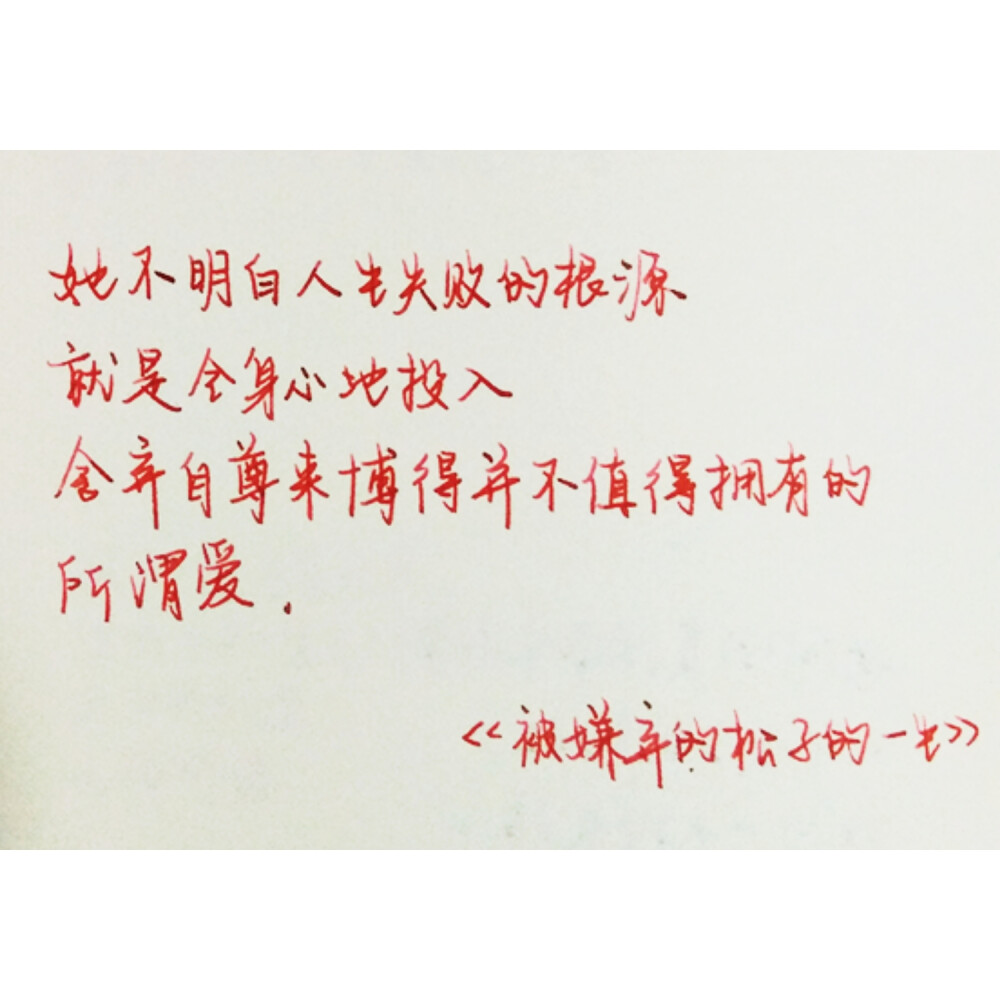 她不明白人生失败的根源
就是全身心地投入
舍弃自尊来博得并不值得拥有的
所谓爱.
<<被嫌弃的松子的一生>>